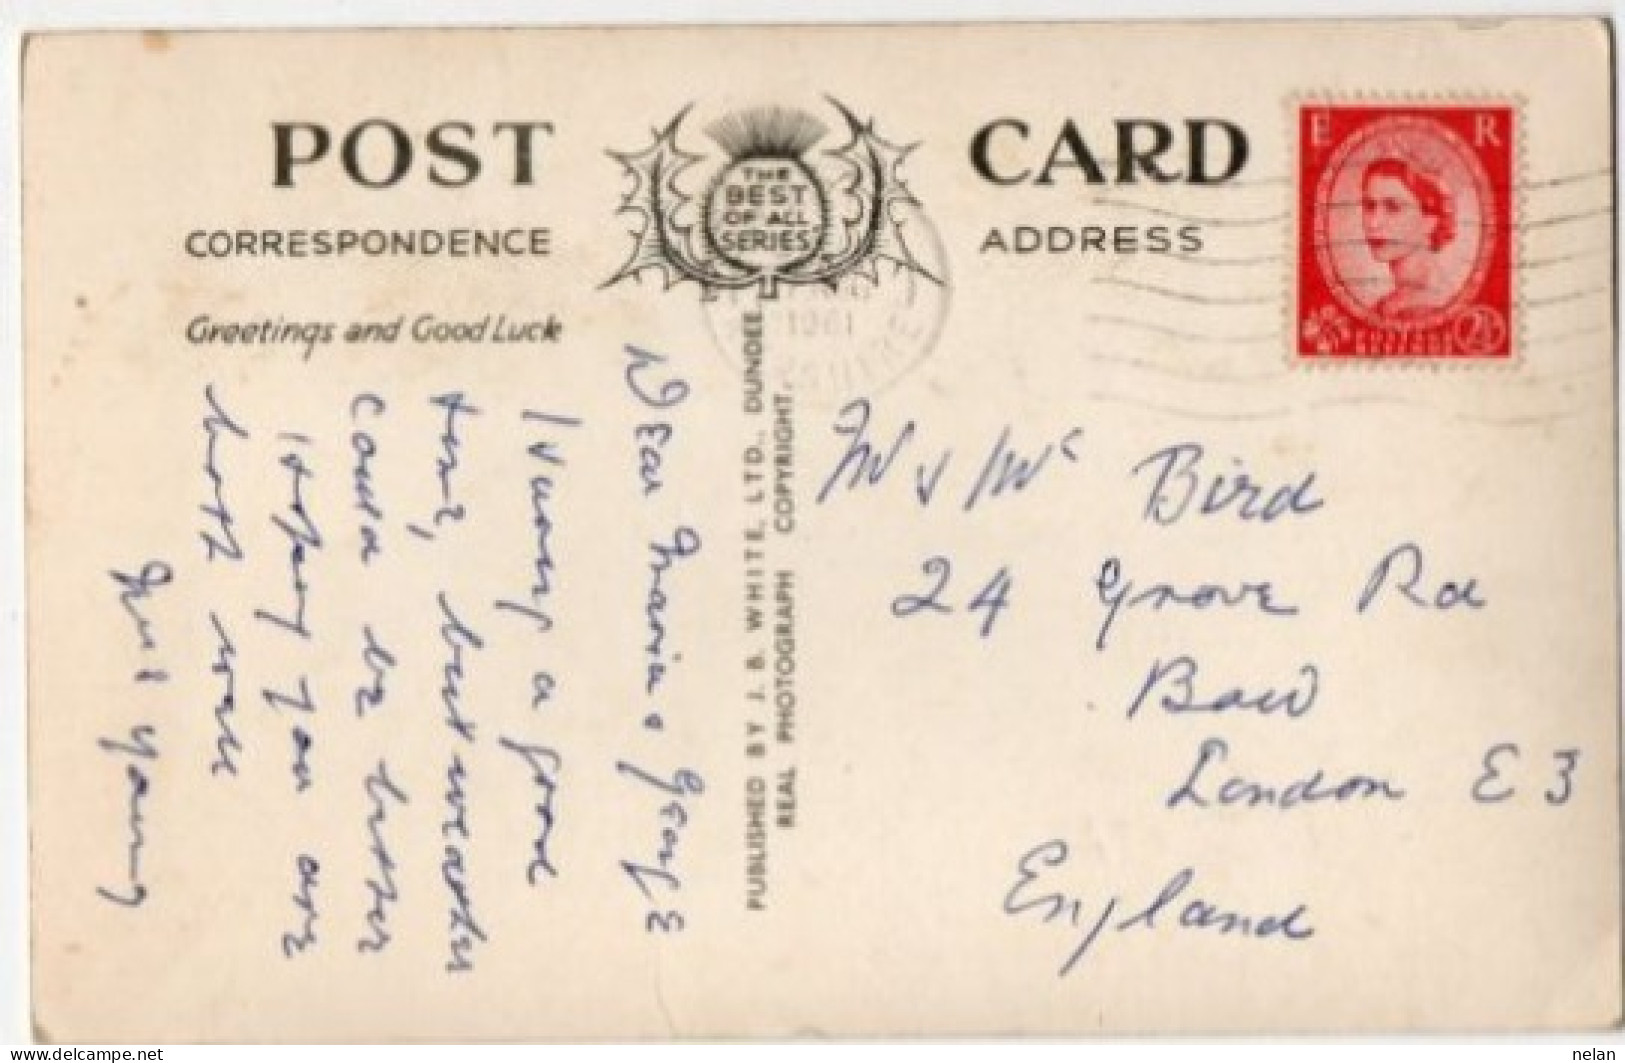 POST CARD
THE
BEST
OF ALL
SERIES
CORRESPONDENCE
ADDRESS
Greetings and Good Luck
E R
2½
1961
SHIRE
PUBLISHED BY J. B. WHITE, LTD., DUNDEE.
REAL PHOTOGRAPH COPYRIGHT.
Dear & George
Having a good
time, but weather
could be better
Hoping you are
both well
Young
Mr & Mrs Bird
24 Grove Rd
Bow
London E 3
England
nelan
www.delcampe.net